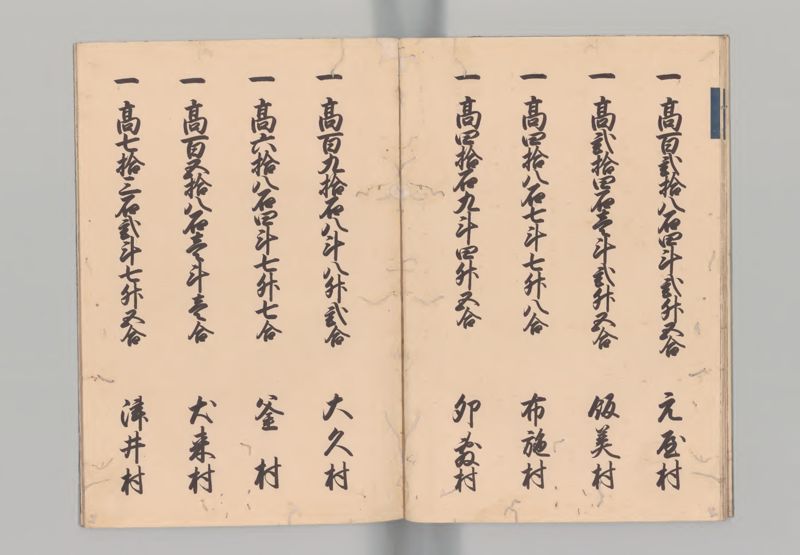 一 高百弐拾八石四斗弐升五合 元屋村
一 高弐拾四石壱斗弐升五合 飯美村
一 高四拾八石七斗七升八合 布施村
一 高四拾石九斗四升五合 卯敷村
一 高百九拾石八斗八升弐合 大久村
一 高六拾八石四斗七升七合 釜村
一 高百五拾八石壱斗壱合 犬来村
一 高七拾三石弐斗七升五合 津井村